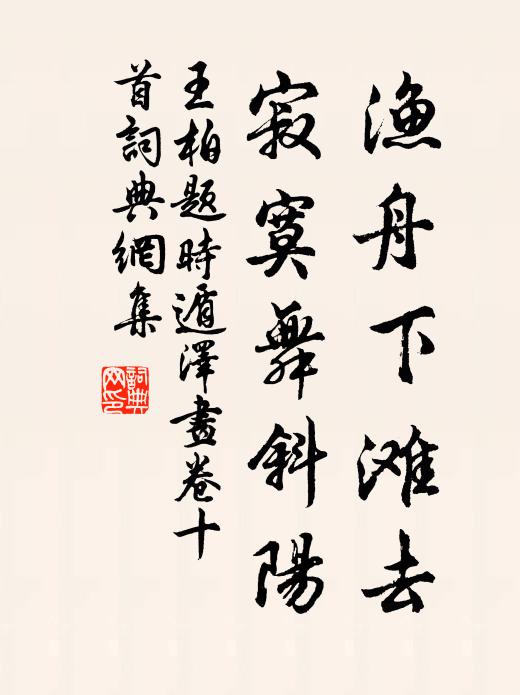 渔舟下滩去
寂寞舞斜陽
王柏題時遁澤畫卷十
首詞典網集
詞典網印